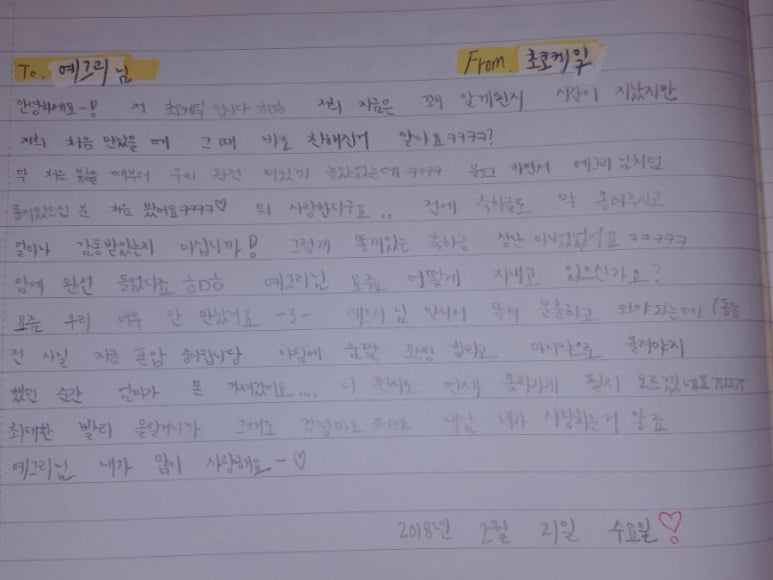 To. 예그리님 From. 초코케잌
안녕하세요~! 저 초코케잌 입니다 ㅎㅁㅎ 저희 지금은 꽤 알게된지 시간이 지났지만
저희 처음 만났을 때 그 때 바로 친해진거 알아요ㅋㅋㅋㅋ?
막 처음 봤을 때부터 우리 완전 재밌게 놀았었는데 ㅋㅋㅋㅋ 블로그 하면서 예그리님처럼
똘끼있으신 분 처음 봤어요ㅋㅋㅋㅋ♡ 뭐 사랑한다구요.. 전에 축하글도 막 올려주시고
얼마나 감동받았는지 아십니까! 그렇게 똘끼있는 축하글 장난 아니었었어요 ㅋㅋㅋㅋㅋ
맘에 완전 들었다죠 ㅎㅁㅎ 예그리님 요즘 어떻게 지내고 있으신가요?
요즘 우리 너무 안 만났어요 -3- 예그리님 만나서 똘끼 분출하고 와야되는데 (동공
전 사실 지금 폰압 중이랍니당 아침에 움짤 완성 할라고 마지막으로 올려야지
했던 순간 엄마가 폰 가져갔어요.... 이 편지도 언제 올라가게 될지 모르겠네요ㅠㅁㅠ
최대한 빨리 올릴거니까 그래도 걱정마요 내가 사랑하는거 알죠
예그리님 내가 많이 사랑해요~♡
2018년 2월 21일 수요일♡!